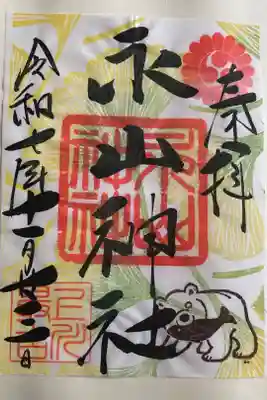 奉拝
永山神社
令和七年十一月廿三日
永山
神社